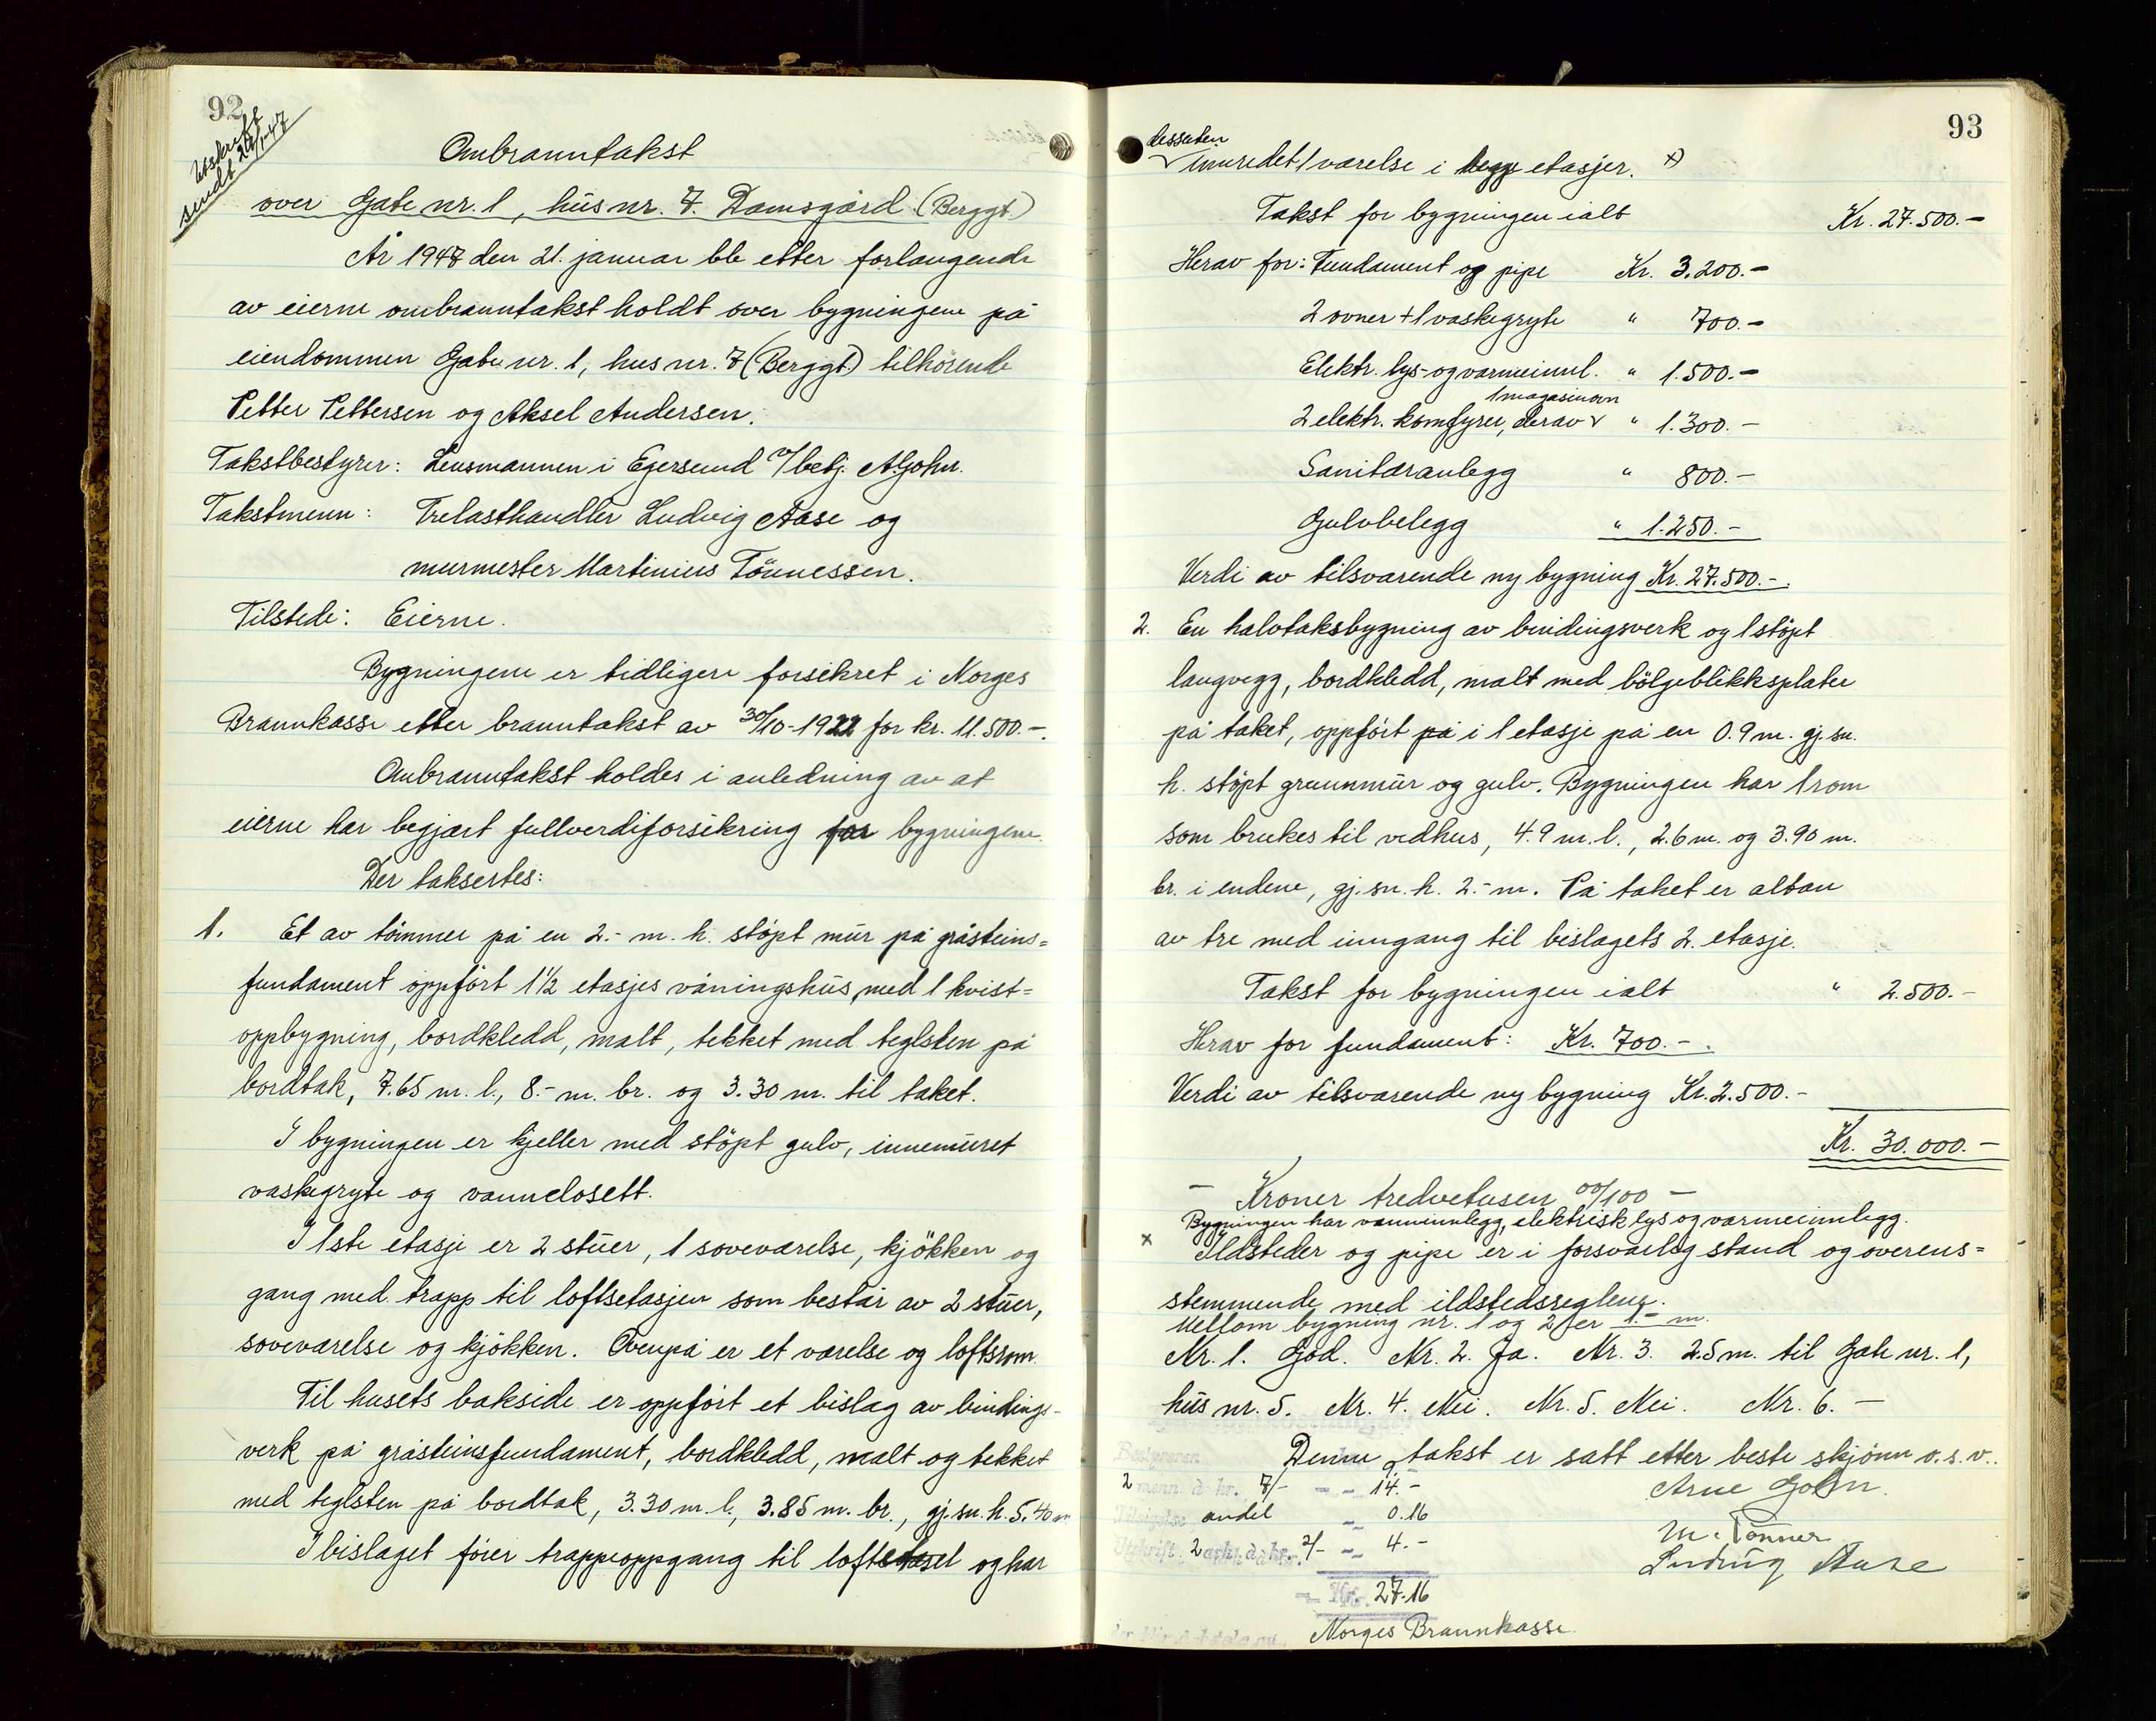 92
Utskrift
sendt 24/1-47
Ombranntakst
over Gate nr. 1, hus nr. 7. Damsgård (Berggt.)
År 1947 den 21. januar ble etter forlangende
av eierne ombranntakst holdt over bygningene på
eiendommen Gate nr. 1, hus nr. 7 (Berggt.) tilhörende
Petter Pettersen og Aksel Andersen.
Takstbestyrer: Lensmannen i Egersund v/betj. A. Gohn.
Takstmenn: Trelasthandler Ludvig Aase og
murmester Martinius Tönnessen.
Tilstede: Eierne.
Bygningene er tidligere forsikret i Norges
Brannkasse etter branntakst av 30/10-1922 for kr. 11.500.-.
Ombranntakst holdes i anledning av at
eierne har begjært fullverdiforsikring for bygningene.
Der taksertes:
1. Et av tömmer på en 2.- m. h. stöpt mur på gråsteins=
fundament oppfört 1½ etasjes våningshus, med 1 kvist=
oppbygning, bordkledd, malt, tekket med teglsten på
bordtak, 7.65 m. l., 8.- m. br. og 3.30 m. til taket.
I bygningen er kjeller med stöpt gulv, innemuret
vaskegryte og vannclosett.
I 1ste etasje er 2 stuer, 1 soveværelse, kjökken og
gang med trapp til loftsetasjen som består av 2 stuer,
soveværelse og kjökken. Ovenpå er et værelse og loftsrom.
Til husets bakside er oppfört et bislag av bindings-
verk på gråsteinsfundament, bordkledd, malt og tekket
med teglsten på bordtak, 3.30 m. l., 3.85 m. br., gj.sn. h. 5.40 m.
I bislaget förer trappeoppgang til loftet og har
93
dessuten
innredet 1 værelse i begge etasjer. x)
Takst for bygningen ialt Kr. 27.500.-
Herav for: Fundament og pipe Kr. 3.200.-
2 ovner + 1 vaskegryte " 700.-
Elektr. lys- og varmeinnl. " 1.500.-
1 magasinovn
2 elektr. komfyrer, derav v " 1.300.-
Sanitæranlegg " 800.-
Gulvbelegg " 1.250.-
Verdi av tilsvarende ny bygning Kr. 27.500.-.
2. En halvtaksbygning av bindingsverk og 1 stöpt
langvegg, bordkledd, malt med bölgeblikksplater
på taket, oppfört på i 1 etasje på en 0.9 m. gj.sn.
h. stöpt grunnmur og gulv. Bygningen har 1 rom
som brukes til vedhus, 4.9 m. l., 2.6 m. og 3.90 m.
br. i endene, gj.sn. h. 2.- m. På taket er altan
av tre med inngang til bislagets 2. etasje.
Takst for bygningen ialt " 2.500.-
Herav for fundament: Kr. 700.-.
Verdi av tilsvarende ny bygning Kr. 2.500.-
Kr. 30.000.-
- Kroner tredvetusen 00/100 -
Bygningen har vanninnlegg, elektrisk lys og varmeinnlegg.
x Ildsteder og pipe er i forsvarlig stand og overens=
stemmende med ildstedsreglene.
Mellom bygning nr. 1 og 2 er 1.- m.
Nr. 1. God. Nr. 2. Ja. Nr. 3. 2.5 m. til Gate nr. 1,
hus nr. 5. Nr. 4. Nei. Nr. 5. Nei. Nr. 6. -
Denne takst er satt etter beste skjönn o.s.v..
Bestyreren 9.-
2 menn à kr. 7/- - - 14.-
Tilsigelse andel - 0.16
Utskrift 2 ark à kr. 2/- - - 4.-
Kr. 27.16
Norges Brannkasse.
Arne Gohn.
M. Tönner
Ludvig Aase